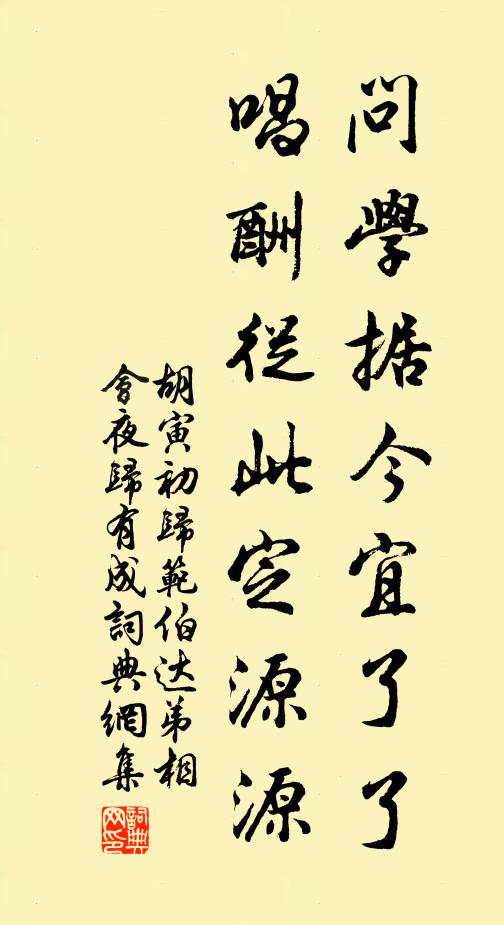 問學据今宜了了
唱酬從此定源源
胡寅初歸範伯达弟相
會夜歸有成詞典網集
詞典網印